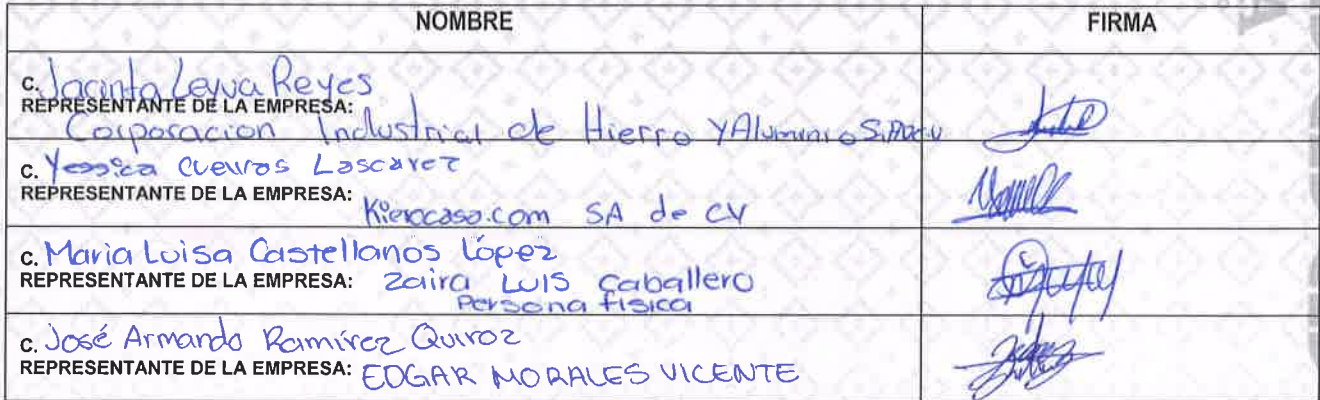 NOMBRE FIRMA
C. Jacinta Leyva Reyes
REPRESENTANTE DE LA EMPRESA:
Corporacion Industrial de Hierro y Aluminio S.A de C.V
C. Yessica Cuevas Lascarez
REPRESENTANTE DE LA EMPRESA:
Kierocasa.com SA de CV
C. Maria Luisa Castellanos López
REPRESENTANTE DE LA EMPRESA: Zaira LUIS Caballero
Persona fisica
C. José Armando Ramírez Quiroz
REPRESENTANTE DE LA EMPRESA: EDGAR MORALES VICENTE